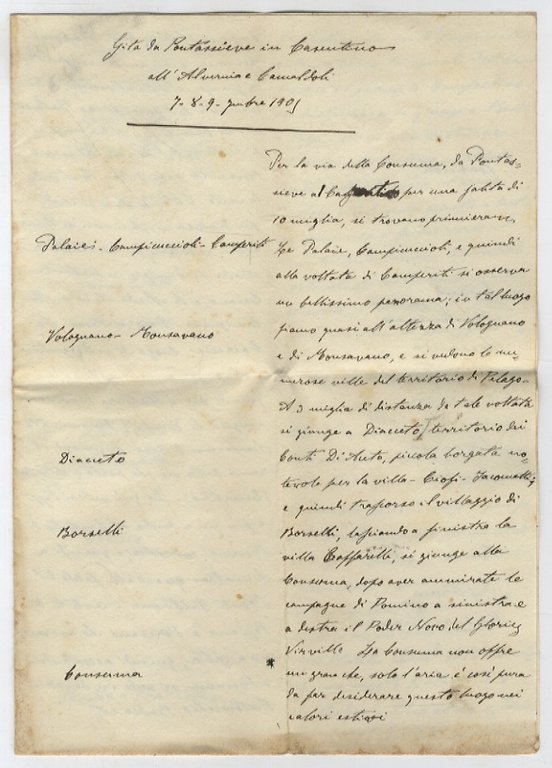 Gita da Pontassieve in Casentino
all'Alvernia e Camaldoli
7-8-9-7mbre 1901
Per la via della Consuma, da Pontas=
sieve al per una salita di
10 miglia, si trovano primieram,
Palaie - Campicuccioli - Camperiti
Le Palaie, Campicuccioli, e quindi
alla voltata di Camperiti si osserva
un bellissimo panorama; in tal luogo
Volognano - Monsavano
siamo quasi all'altezza di Volognano
e di Monsavano, e si vedono le nu=
merose ville del territorio di Pelago-
A 3 miglia di distanza da tale voltata
si giunge a Diacceto, territorio dei
Diacceto
Conti Di Aceto, piccola borgata no=
tevole per la villa
e quindi trascorso il villaggio di
Borselli
Borselli, lasciando a sinistra la
villa si giunge alla
Consuma, dopo aver ammirate le
campagne di Pomino a sinistra e
a destra il Poder Novo del
Virville La Consuma non offre
Consuma
un gran che, solo l'aria è così pura
da far desiderare questo luogo nei
calori estivi